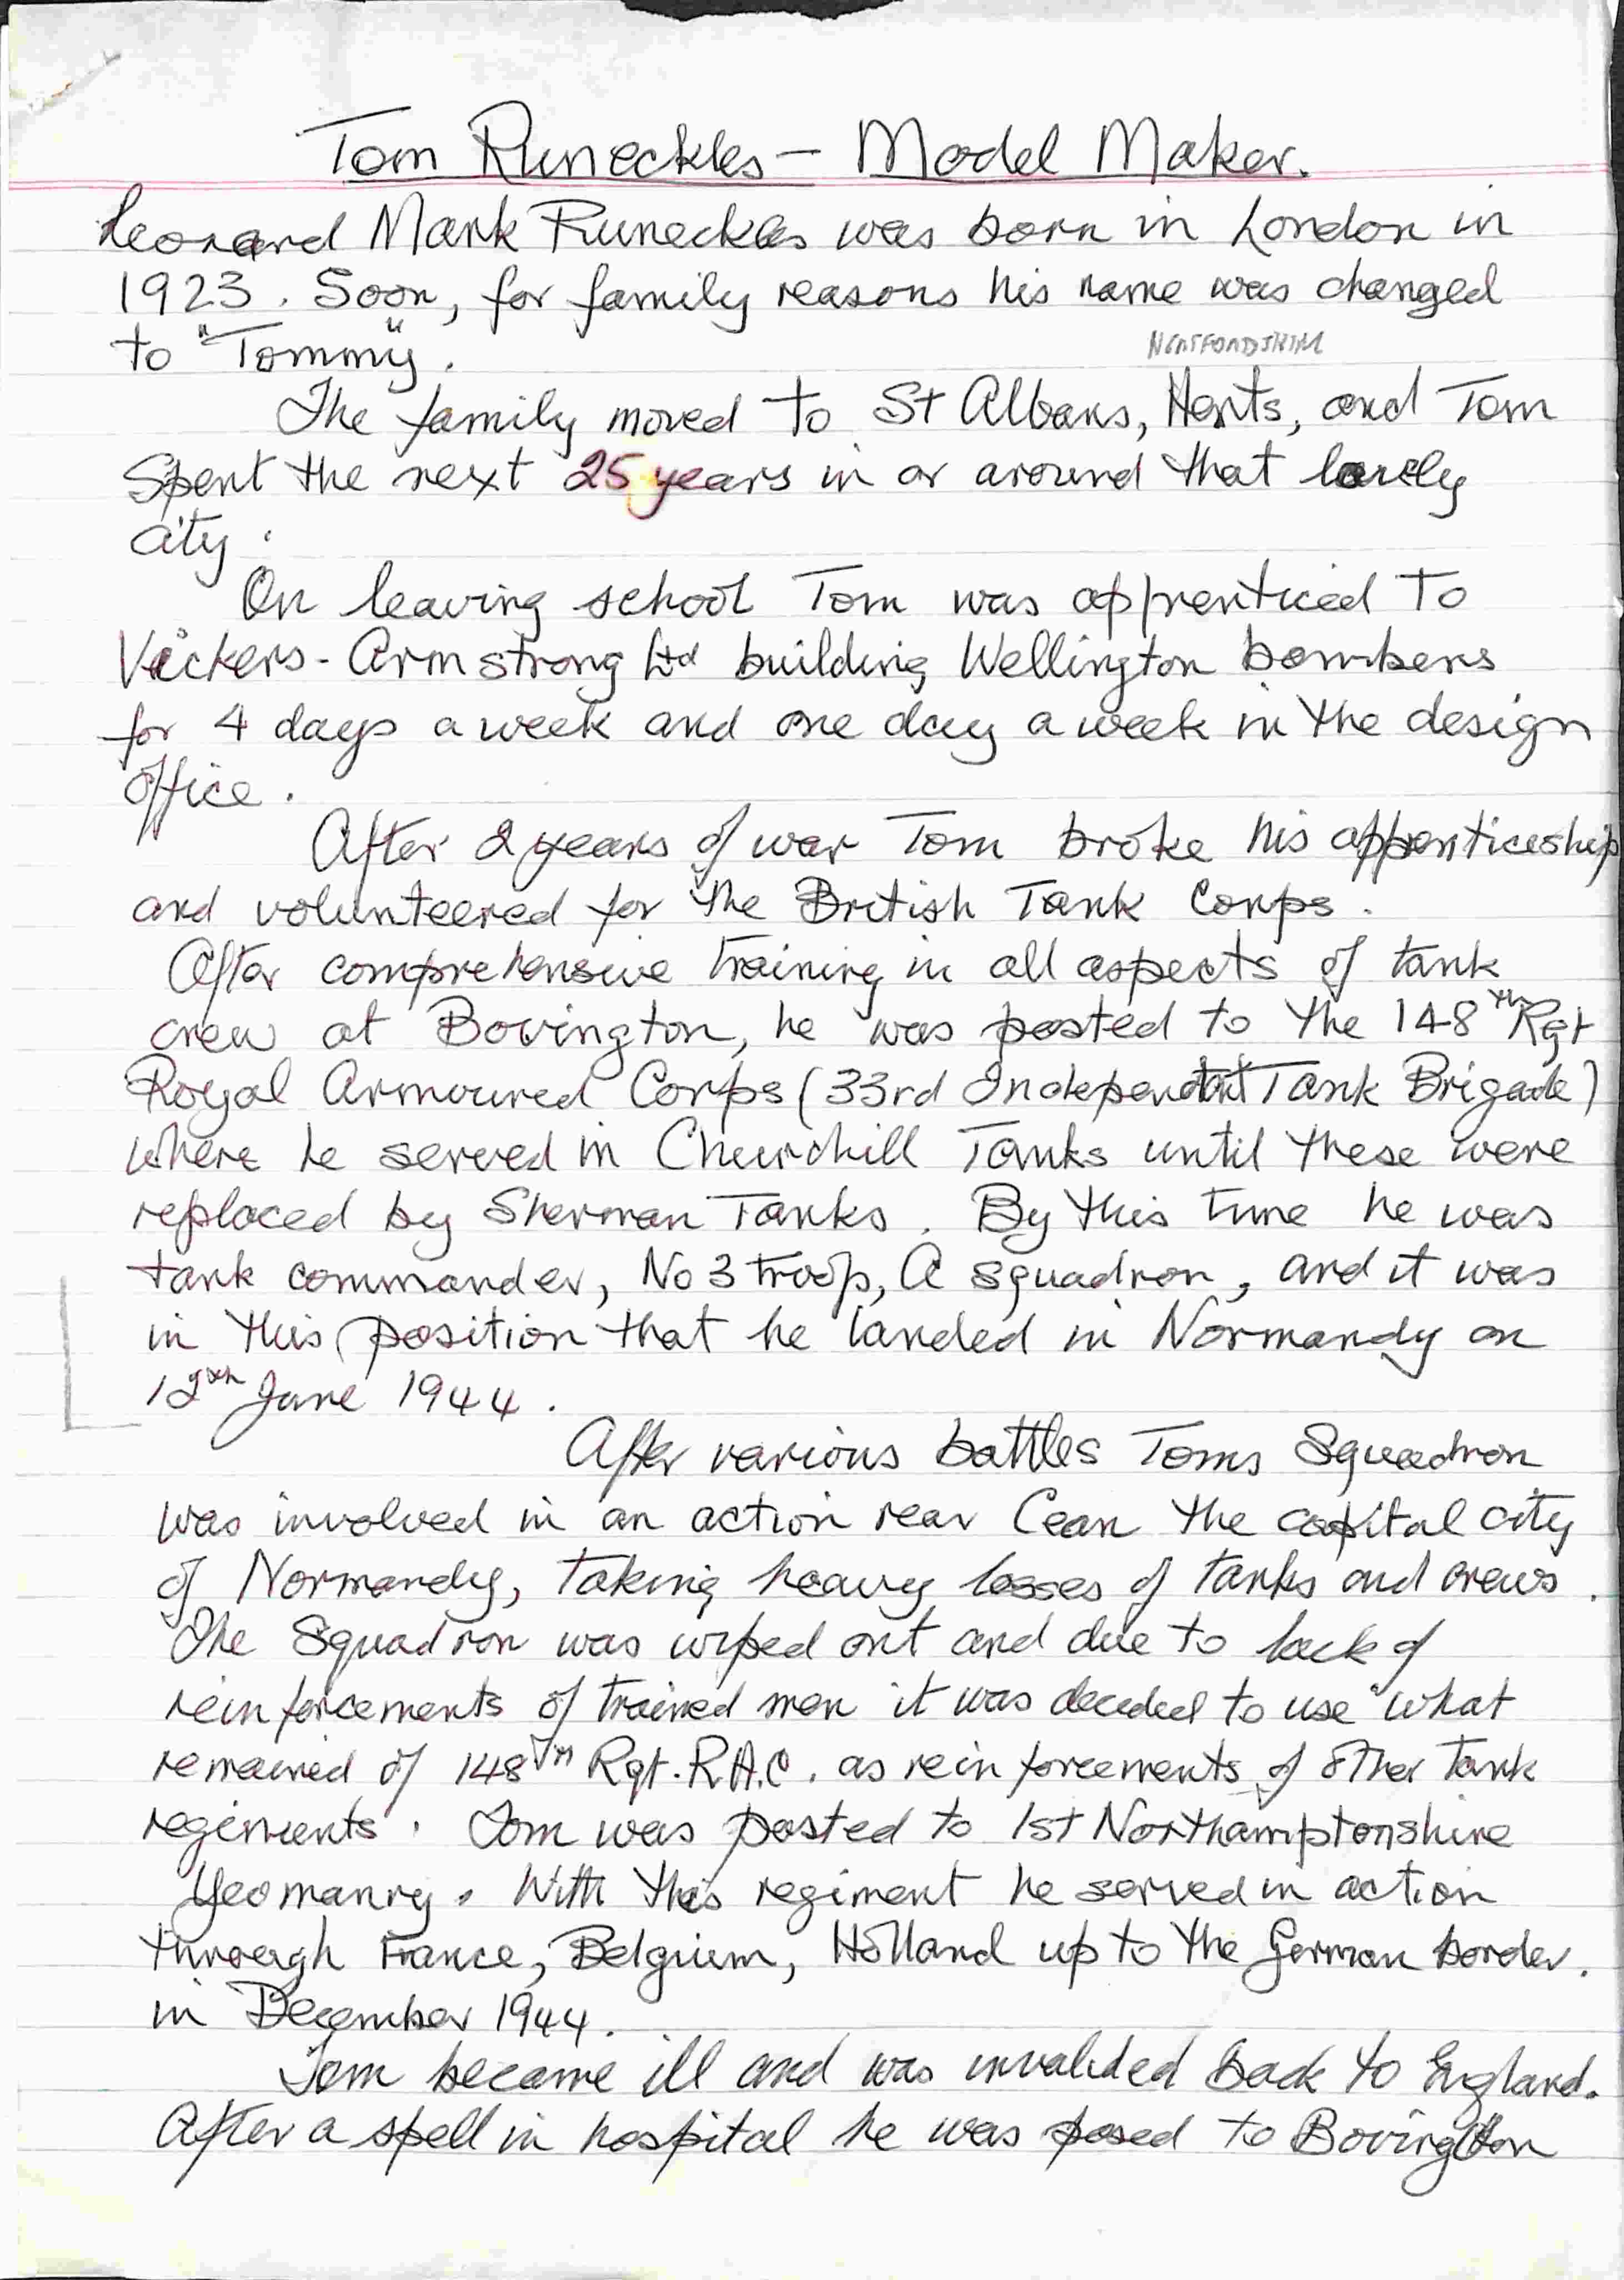 Tom Runeckles – Model Maker.
Leonard Mark Runeckles was born in London in
1923. Soon, for family reasons his name was changed
to "Tommy".
HERTFORDSHIRE
The family moved to St Albans, Herts, and Tom
Spent the next 25 years in or around that lovely
city.
On leaving school Tom was apprenticed to
Vickers-Armstrong Ltd building Wellington bombers
for 4 days a week and one day a week in the design
office.
After 2 years of war Tom broke his apprenticeship
and volunteered for the British Tank Corps.
After comprehensive training in all aspects of tank
crew at Bovington, he was posted to the 148th Rgt
Royal Armoured Corps (33rd Independent Tank Brigade)
where he served in Churchill Tanks until these were
replaced by Sherman Tanks. By this time he was
tank commander, No 3 troop, A squadron, and it was
in this position that he landed in Normandy on
12th June 1944.
After various battles Toms Squadron
was involved in an action near Cean the capital city
of Normandy, taking heavy losses of tanks and crews.
The Squadron was wiped out and due to lack of
reinforcements of trained men it was decided to use what
remained of 148th Rgt. R.A.C. as reinforcements of other Tank
regiments. Tom was posted to 1st Northamptonshire
Yeomanry. With this regiment he served in action
through France, Belgium, Holland up to the German border.
in December 1944.
Tom became ill and was invalided back to England.
After a spell in hospital he was posed to Bovington